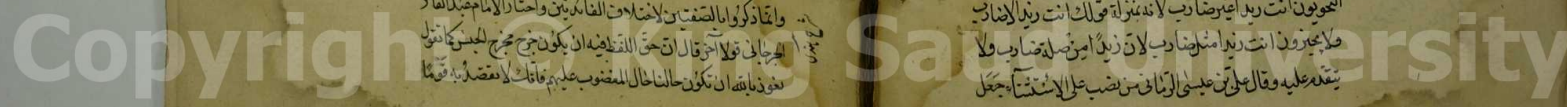 النحويون انت زيدا غير ضارب لانه بمنزلة قولك انت زيدا لا ضارب
ولا يجيزون انت زيدا مثل ضارب لان زيدا من صلة ضارب ولا
يتقدم عليه وقال علي بن عيسى الرماني من نصب على الاستثناء جعل
وانما ذكروا بالصفتين لاختلاف الفائدتين واختار الامام عبد القاهر
الجرجاني قولا آخر قال ان حق اللفظ فيه ان يكون خرج مخرج الجنس كما تقول
نعوذ بالله ان تكون حالنا حال المغضوب عليهم فانك لا تقصد به قوما
Copyright © King Saud University